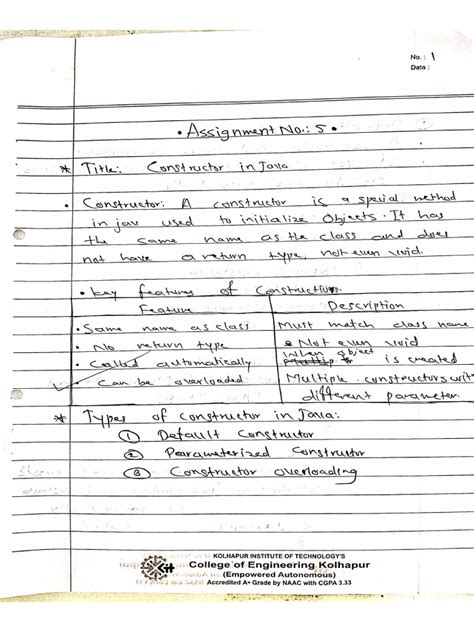 No.: 1
Date :
• Assignment No.: 5 •
* Title: Constructor in Java
• Constructor: A constructor is a special method
in jav used to initialize Objects. It has
the same name as the class and does
not have a return type, not even void.
• key features of Construction:
Feature Description
• Same name as class Must match class name
• No return type • Not even void
• Called automatically When object is created
• Can be overloaded Multiple constructors wit
different parameter
* Types of constructor in Java:
① Default Constructor
② Parameterized Constructor
③ Constructor overloading
KOLHAPUR INSTITUTE OF TECHNOLOGY'S
College of Engineering Kolhapur
(Empowered Autonomous)
Accredited A+ Grade by NAAC with CGPA 3.33